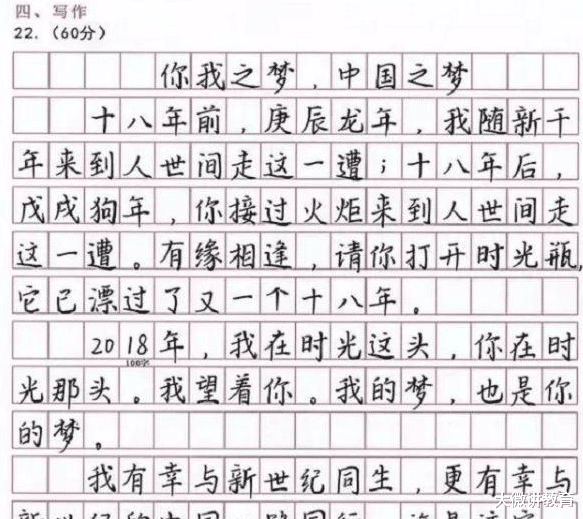 四、写作
22.（60分）
你我之梦，中国之梦
十八年前，庚辰龙年，我随新千
年来到人世间走这一遭；十八年后，
戊戌狗年，你接过火炬来到人世间走
这一遭。有缘相逢，请你打开时光瓶，
它已漂过了又一个十八年。
2018年，我在时光这头，你在时
100字
光那头。我望着你。我的梦，也是你
的梦。
我有幸与新世纪同生，更有幸与
天微讲教育